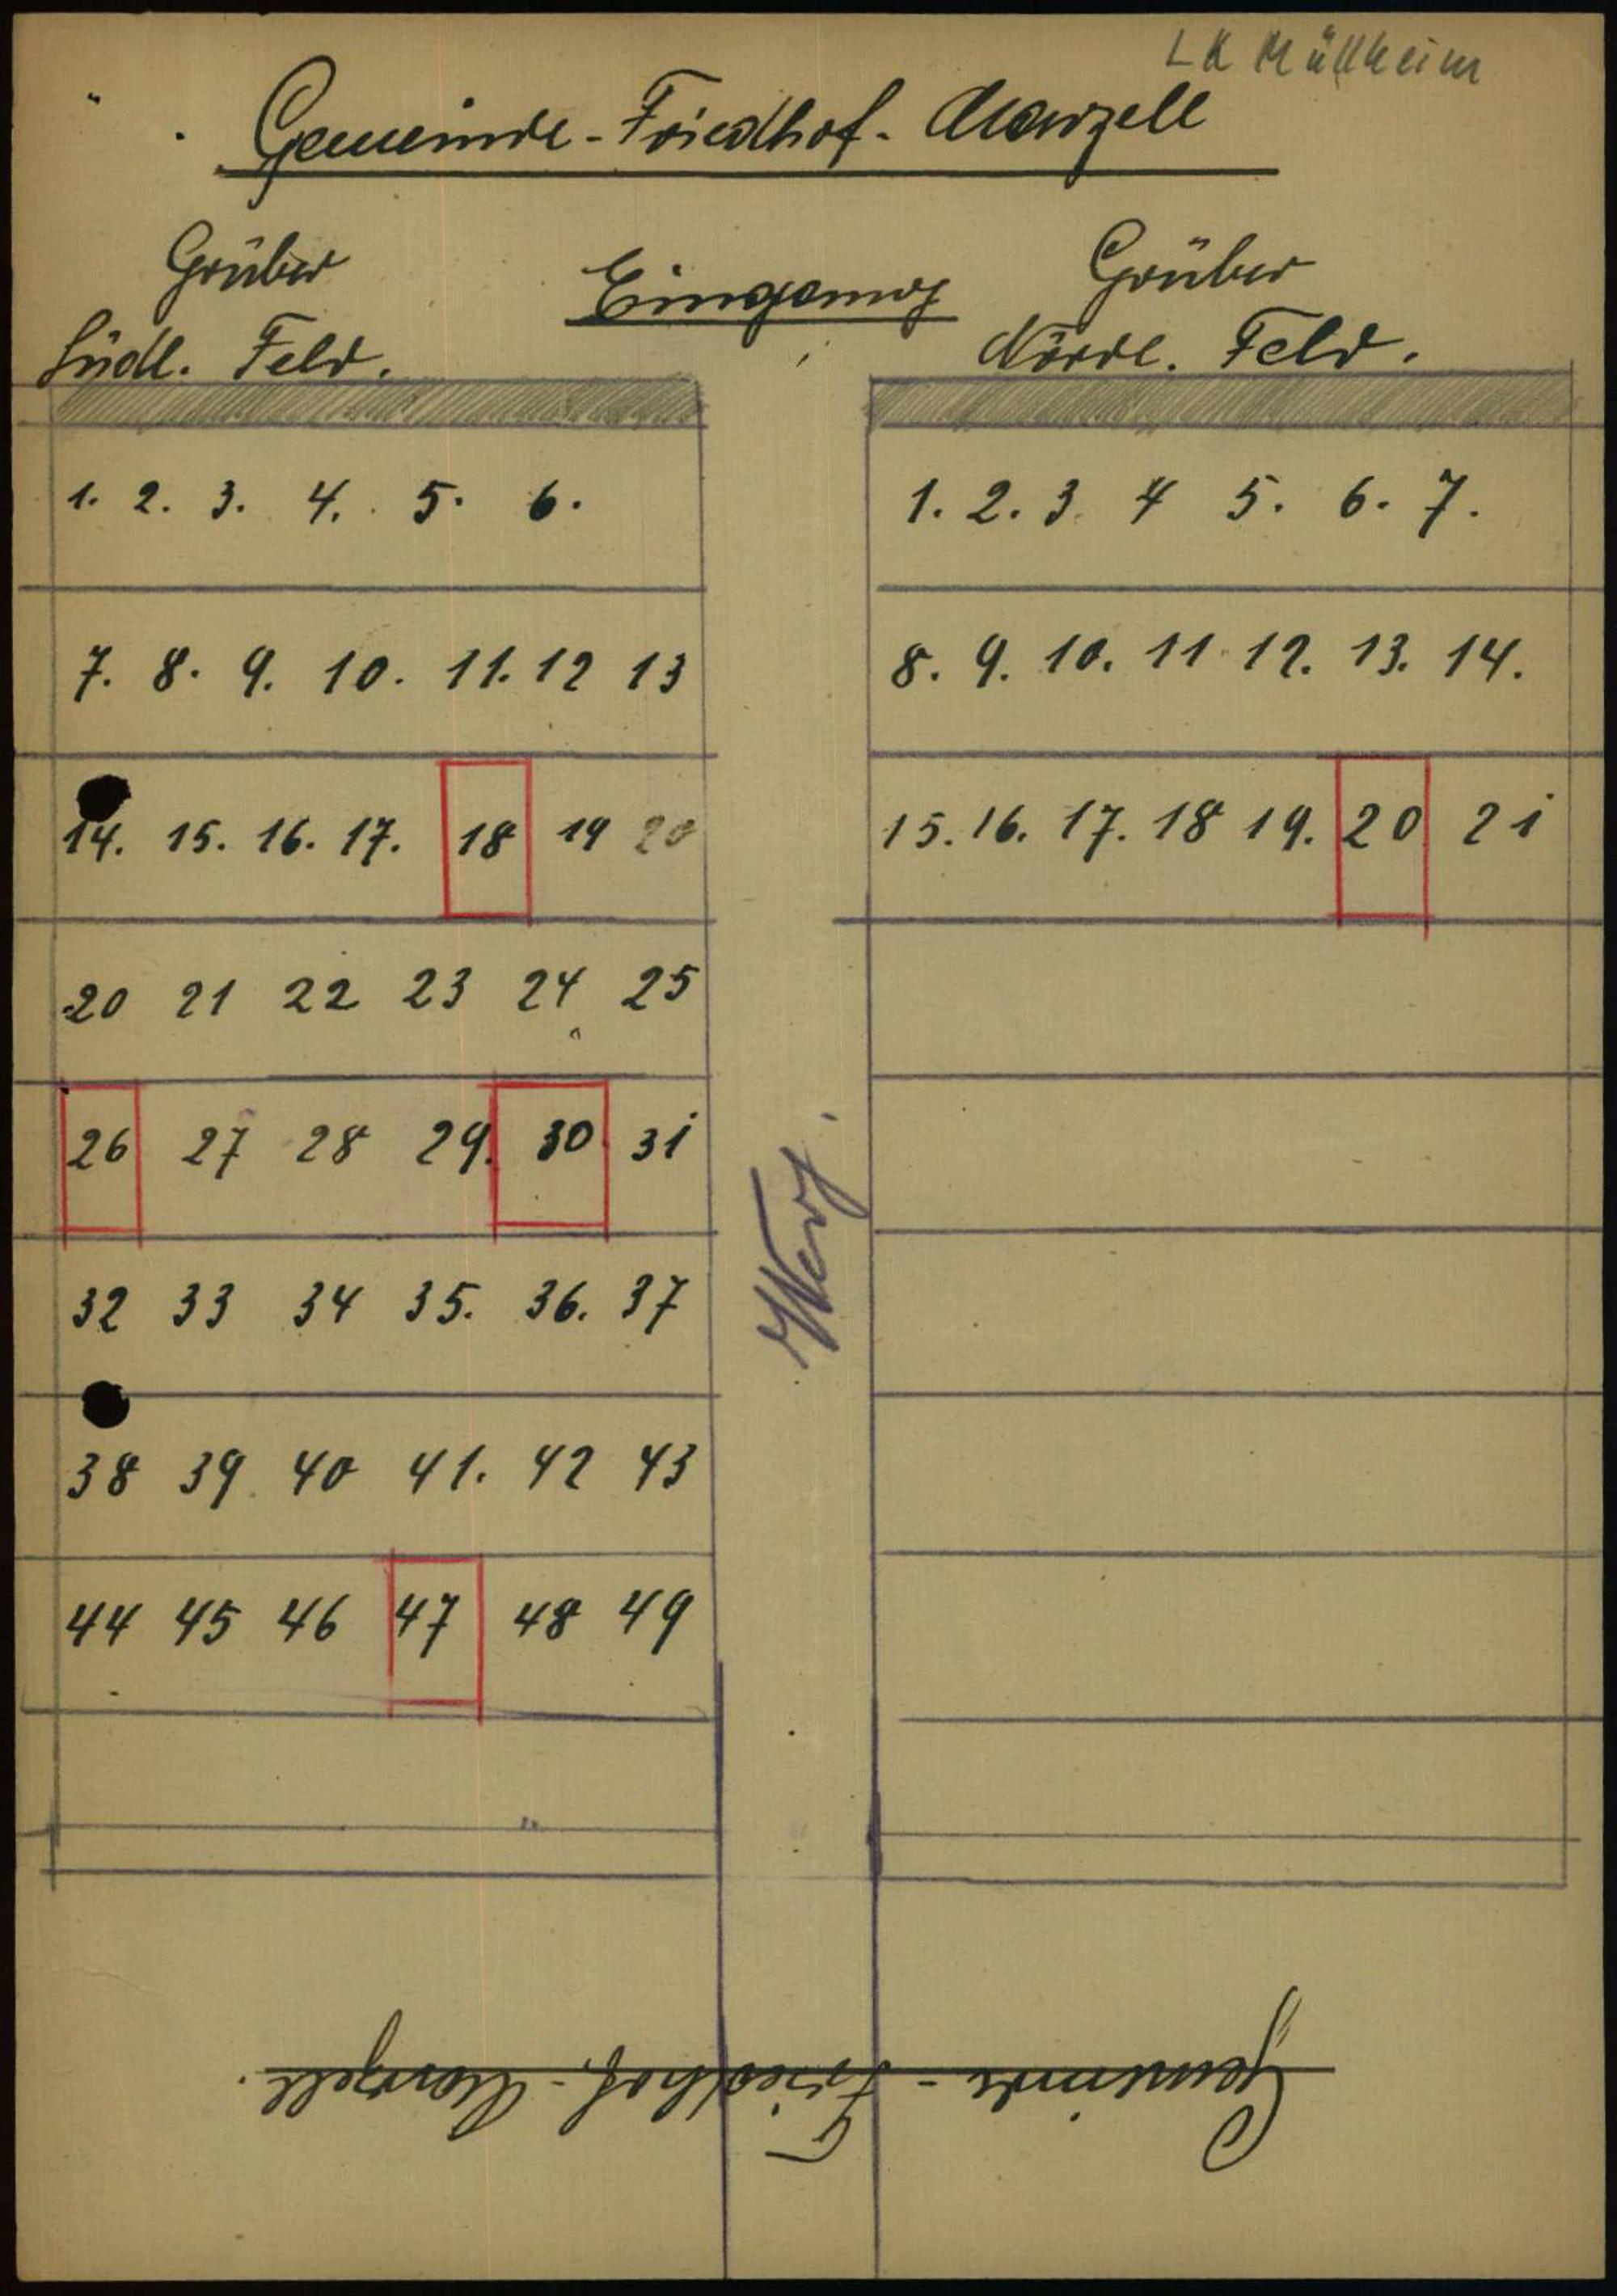 LK Müllheim
Gemeinde-Friedhof-Marzell
Gräber
Südl. Feld.
Eingang
Gräber
Nördl. Feld.
1. 2. 3. 4. 5. 6.
7. 8. 9. 10. 11. 12 13
14. 15. 16. 17. 18 19 20
20 21 22 23 24 25
26 27 28 29. 30 31
32 33 34 35. 36. 37
38 39. 40 41. 42 43
44 45 46 47 48 49
Weg.
1. 2. 3. 4 5. 6. 7.
8. 9. 10. 11 12. 13. 14.
15. 16. 17. 18 19. 20 21
Gemeinde - Friedhof - Marzell.